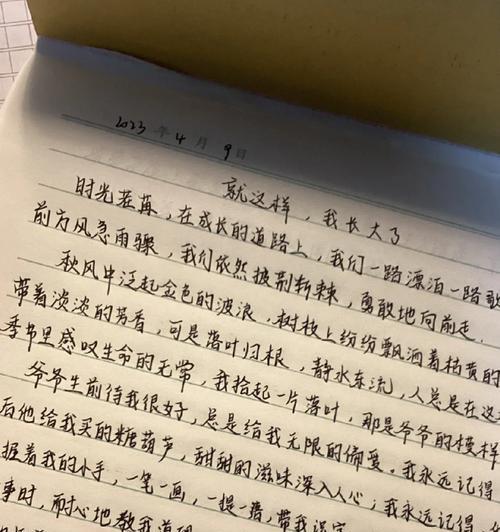 2023 年 4 月 9 日
就这样，我长大了
时光荏苒，在成长的道路上，我们一路漂泊一路歌
前方风急雨骤，我们依然披荆斩棘，勇敢地向前走.
秋风中泛起金色的波浪.树枝上纷纷飘洒着枯黄的
带着淡淡的芳香，可是落叶归根，静水东流，人总是在这
季节里感叹生命的无常，我拾起一片落叶，那是爷爷的模样
爷爷生前待我很好，总是给我无限的偏爱.我永远记得
后他给我买的糖葫芦，甜甜的滋味深入人心；我永远记得
握着我的小手，一笔一画，一提一捺，带我识字
事时，耐心地教我道理